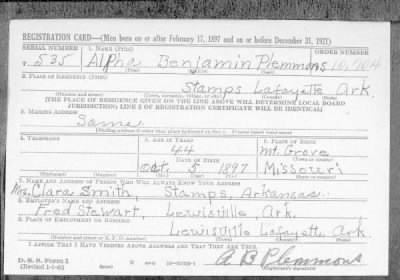 REGISTRATION CARD—(Men born on or after February 17, 1897 and on or before December 31, 1921)
SERIAL NUMBER 1. NAME (Print) ORDER NUMBER
535 Alpha Benjamin Plemmons 10,704
2. PLACE OF RESIDENCE (Print)
Stamps Lafayette Ark.
(Number and street) (Town, township, village, or city) (County) (State)
[THE PLACE OF RESIDENCE GIVEN ON THE LINE ABOVE WILL DETERMINE LOCAL BOARD
JURISDICTION; LINE 2 OF REGISTRATION CERTIFICATE WILL BE IDENTICAL]
3. MAILING ADDRESS
Same
[Mailing address if other than place indicated on line 2. If same insert word same]
4. TELEPHONE 5. AGE IN YEARS 6. PLACE OF BIRTH
44 Mt. Grove
DATE OF BIRTH (Town or county)
Oct. 5 1897 Missouri
(Mo.) (Day) (Yr.) (State or country)
7. NAME AND ADDRESS OF PERSON WHO WILL ALWAYS KNOW YOUR ADDRESS
Mrs. Clara Smith, Stamps, Arkansas.
8. EMPLOYER'S NAME AND ADDRESS
Fred Stewart, Lewisville, Ark.
9. PLACE OF EMPLOYMENT OR BUSINESS
Lewisville Lafayette Ark.
(Number and street or R. F. D. number) (Town) (County) (State)
I AFFIRM THAT I HAVE VERIFIED ABOVE ANSWERS AND THAT THEY ARE TRUE.
D. S. S. Form 1
(Revised 1-1-42) A B Plemmons
(Registrant's signature)